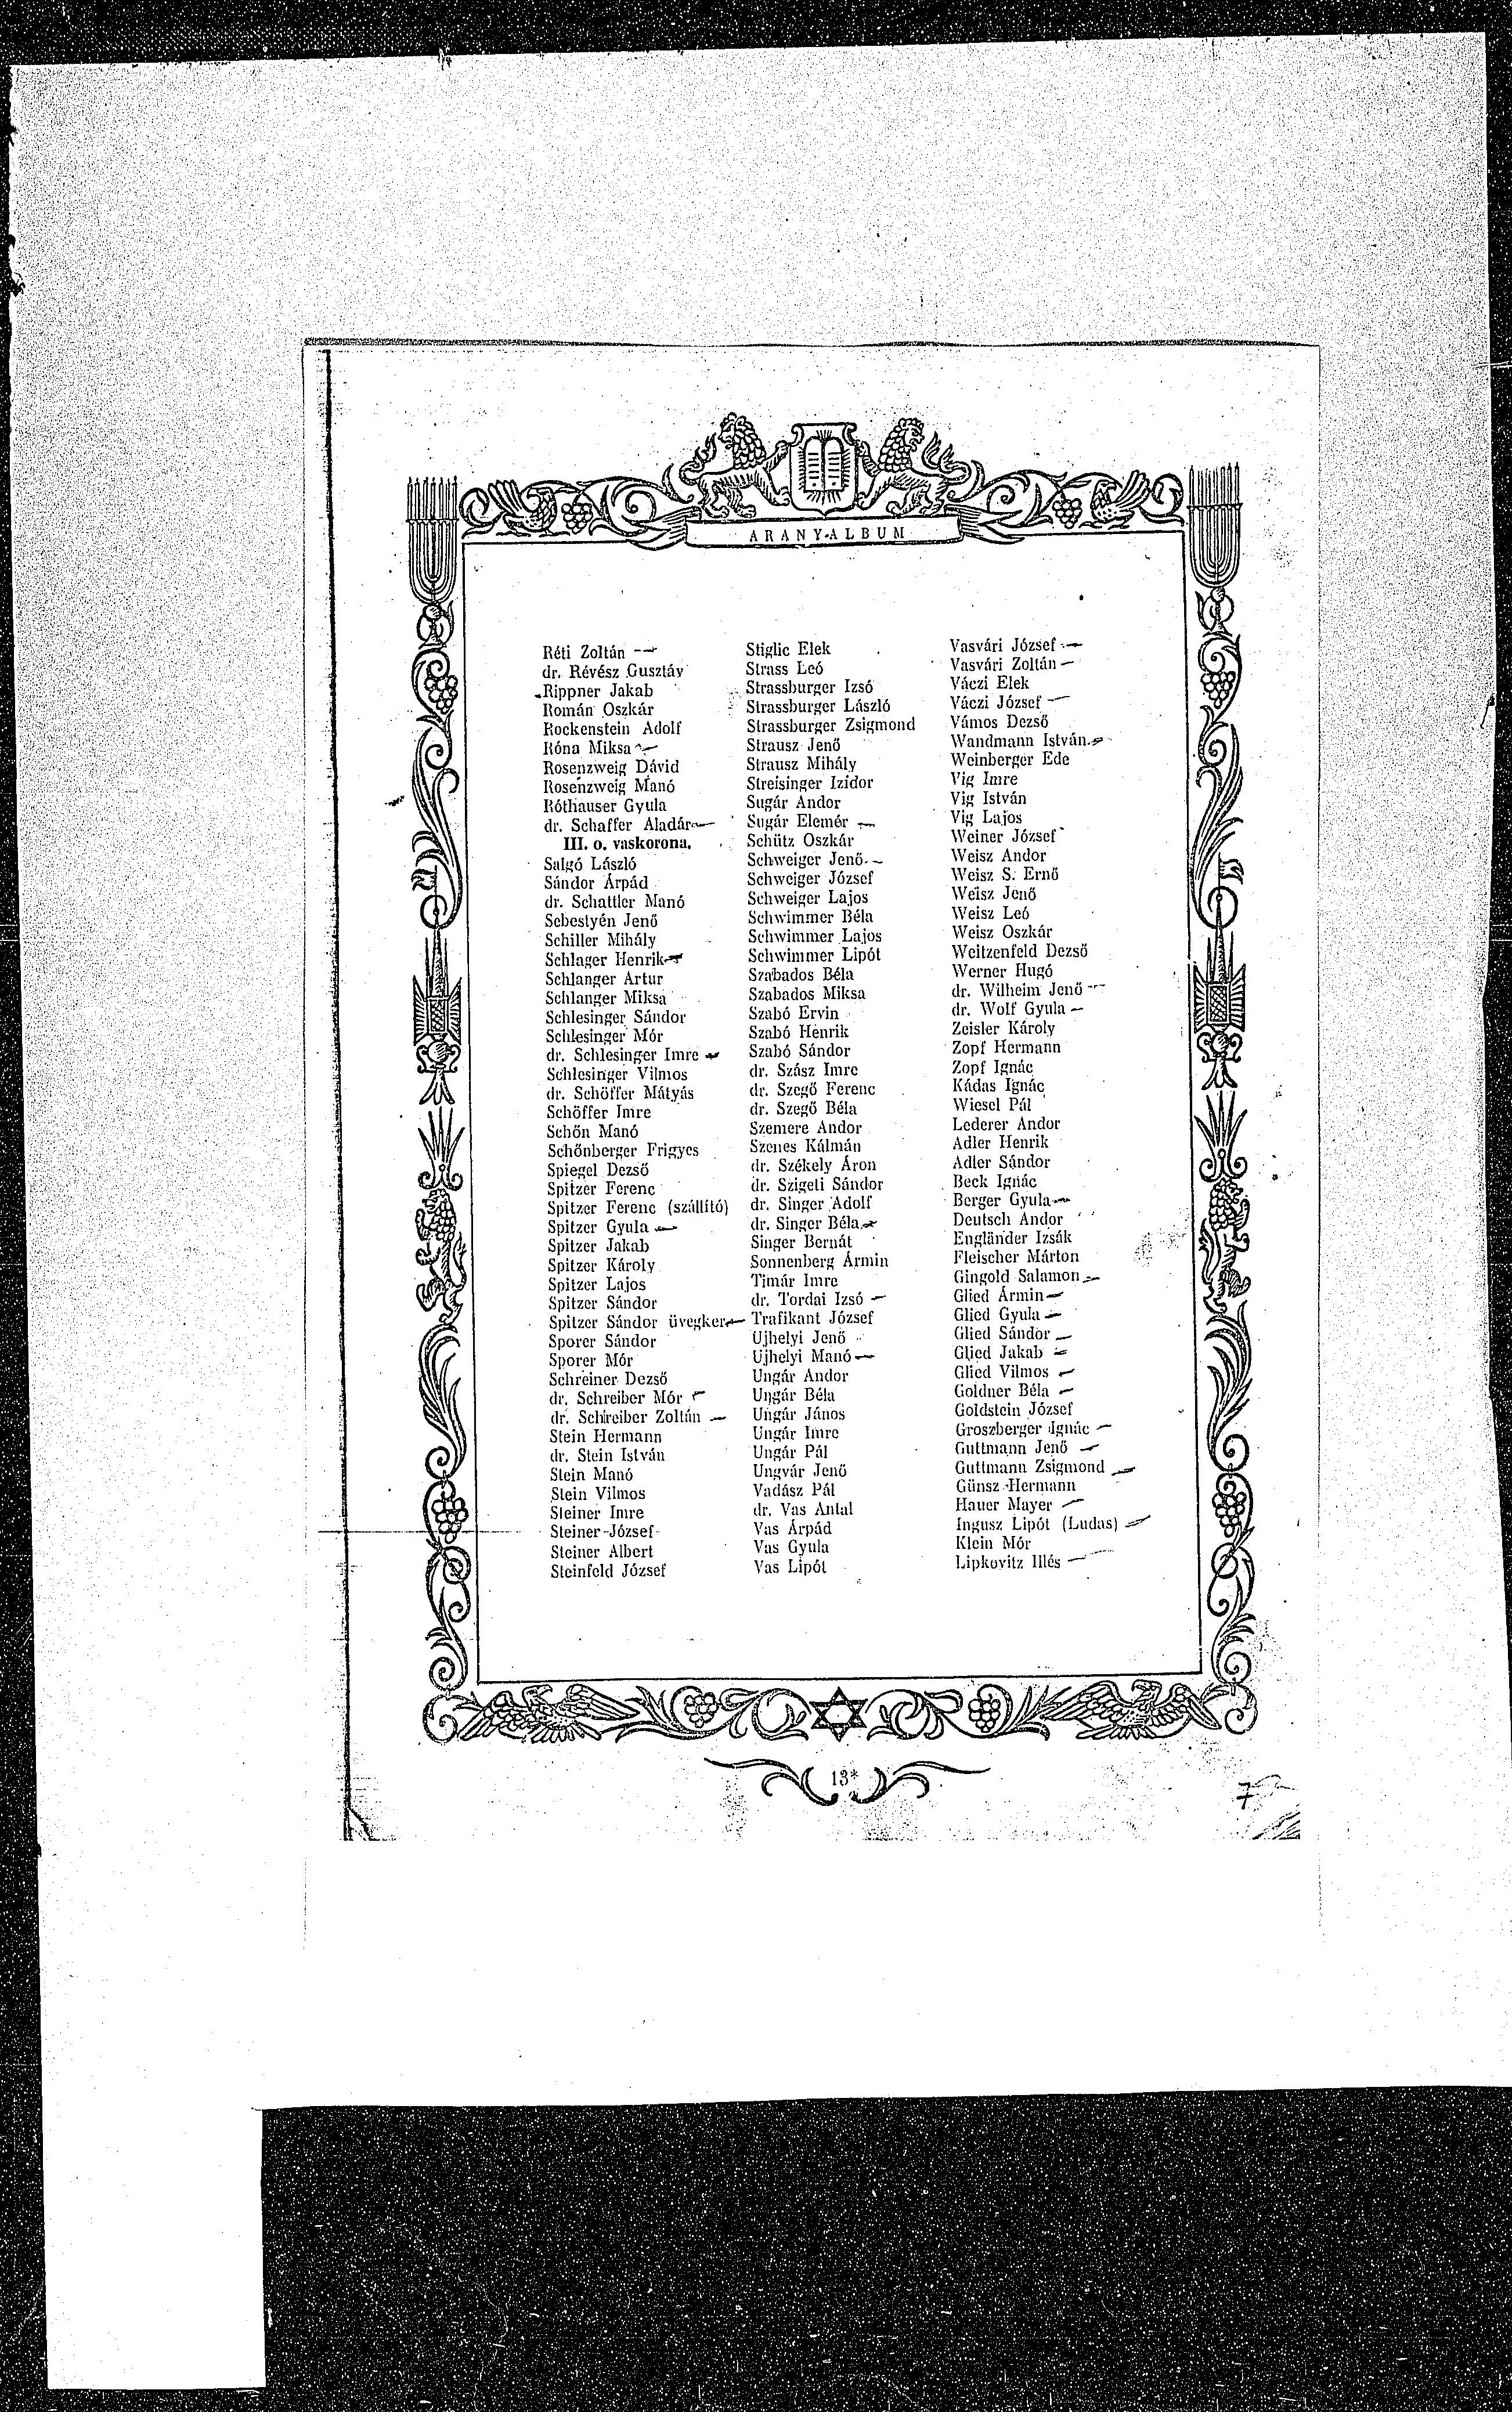 ARANY-ALBUM
Réti Zoltán
dr. Révész Gusztáv
Rippner Jakab
Román Oszkár
Rockenstein Adolf
Róna Miksa
Rosenzweig Dávid
Rosenzweig Manó
Róthauser Gyula
dr. Schaffer Aladár
III. o. vaskorona.
Salgó László
Sándor Árpád
dr. Schattler Manó
Sebestyén Jenő
Schiller Mihály
Schlager Henrik
Schlanger Artur
Schlanger Miksa
Schlesinger Sándor
Schlesinger Mór
dr. Schlesinger Imre
Schlesinger Vilmos
dr. Schöffer Mátyás
Schöffer Imre
Schön Manó
Schönberger Frigyes
Spiegel Dezső
Spitzer Ferenc
Spitzer Ferenc (szállító)
Spitzer Gyula
Spitzer Jakab
Spitzer Károly
Spitzer Lajos
Spitzer Sándor
Spitzer Sándor üvegker.
Sporer Sándor
Sporer Mór
Schreiner Dezső
dr. Schreiber Mór
dr. Schreiber Zoltán
Stein Hermann
dr. Stein István
Stein Manó
Stein Vilmos
Steiner Imre
Steiner József
Steiner Albert
Steinfeld József
Stiglic Elek
Strass Leó
Strassburger Izsó
Strassburger László
Strassburger Zsigmond
Strausz Jenő
Strausz Mihály
Streisinger Izidor
Sugár Andor
Sugár Elemér
Schütz Oszkár
Schweiger Jenő
Schweiger József
Schweiger Lajos
Schwimmer Béla
Schwimmer Lajos
Schwimmer Lipót
Szabados Béla
Szabados Miksa
Szabó Ervin
Szabó Henrik
Szabó Sándor
dr. Szász Imre
dr. Szegő Ferenc
dr. Szegő Béla
Szemere Andor
Szenes Kálmán
dr. Székely Áron
dr. Szigeti Sándor
dr. Singer Adolf
dr. Singer Béla
Singer Bernát
Sonnenberg Ármin
Timár Imre
dr. Tordai Izsó
Trafikant József
Ujhelyi Jenő
Ujhelyi Manó
Ungár Andor
Ungár Béla
Ungár János
Ungár Imre
Ungár Pál
Ungvár Jenő
Vadász Pál
dr. Vas Antal
Vas Árpád
Vas Gyula
Vas Lipót
Vasvári József
Vasvári Zoltán
Váczi Elek
Váczi József
Vámos Dezső
Wandmann István
Weinberger Ede
Vig Imre
Vig István
Vig Lajos
Weiner József
Weisz Andor
Weisz S. Ernő
Weisz Jenő
Weisz Leó
Weisz Oszkár
Weitzenfeld Dezső
Werner Hugó
dr. Wilheim Jenő
dr. Wolf Gyula
Zeisler Károly
Zopf Hermann
Zopf Ignác
Kádas Ignác
Wiesel Pál
Lederer Andor
Adler Henrik
Adler Sándor
Beck Ignác
Berger Gyula
Deutsch Andor
Engländer Izsák
Fleischer Márton
Gingold Salamon
Glied Ármin
Glied Gyula
Glied Sándor
Glied Jakab
Glied Vilmos
Goldner Béla
Goldstein József
Groszberger Ignác
Guttmann Jenő
Guttmann Zsigmond
Günsz Hermann
Hauer Mayer
Ingusz Lipót (Ludas)
Klein Mór
Lipkovitz Illés
13*
7